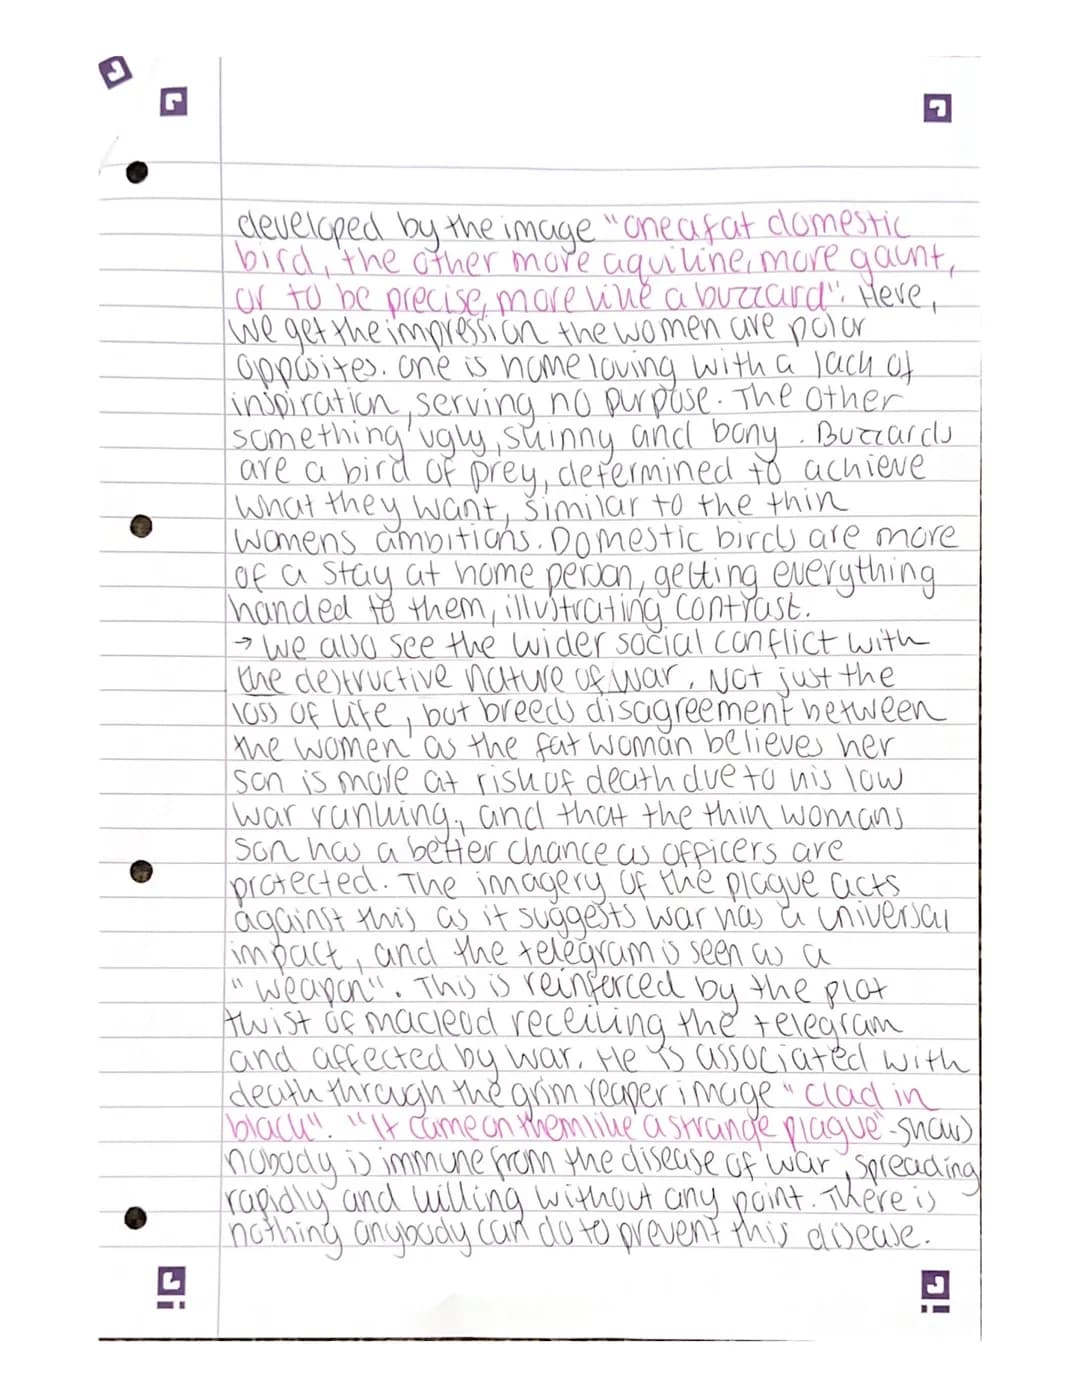 developed by the image "one a fat domestic
bird, the other more aquiline, more gaunt,
or to be precise, more like a buzzard". Here,
we get the impression the women are polar
opposites. One is home loving with a lack of
inspiration, serving no purpose. The other
something ugly, skinny and bony. Buzzards
are a bird of prey, determined to achieve
what they want, similar to the thin
womens ambitions. Domestic birds are more
of a stay at home person, getting everything
handed to them, illustrating contrast.
→ We also see the wider social conflict with
the destructive nature of war. Not just the
loss of life, but breeds disagreement between
the women as the fat woman believes her
son is more at risk of death due to his low
war ranking, and that the thin womans
son has a better chance as officers are
protected. The imagery of the plague acts
against this as it suggests war has a universal
impact, and the telegram is seen as a
"weapon". This is reinforced by the plot
twist of macleod receiving the telegram
and affected by war. He is associated with
death through the grim reaper image "clad in
black". "It came on them like a strange plague"-shows
nobody is immune from the disease of war, spreading
rapidly and killing without any point. There is
nothing anybody can do to prevent this disease.